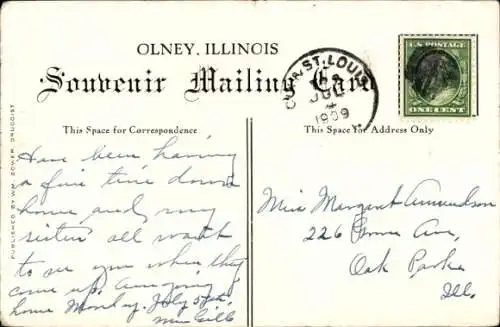 OLNEY, ILLINOIS
Souvenir Mailing Card
This Space for Correspondence
This Space for Address Only
ST. LOUIS
JUL
4
1909
U.S. POSTAGE
ONE CENT
PUBLISHED BY WM. BOWER, DRUGGIST
Have been having
a fine time down
home and my
sister all want
to see you when they
come up. Am going
home Monday. July 5th.
Miss Margaret Amundson
226 Ave,
Oak Park
Ill.